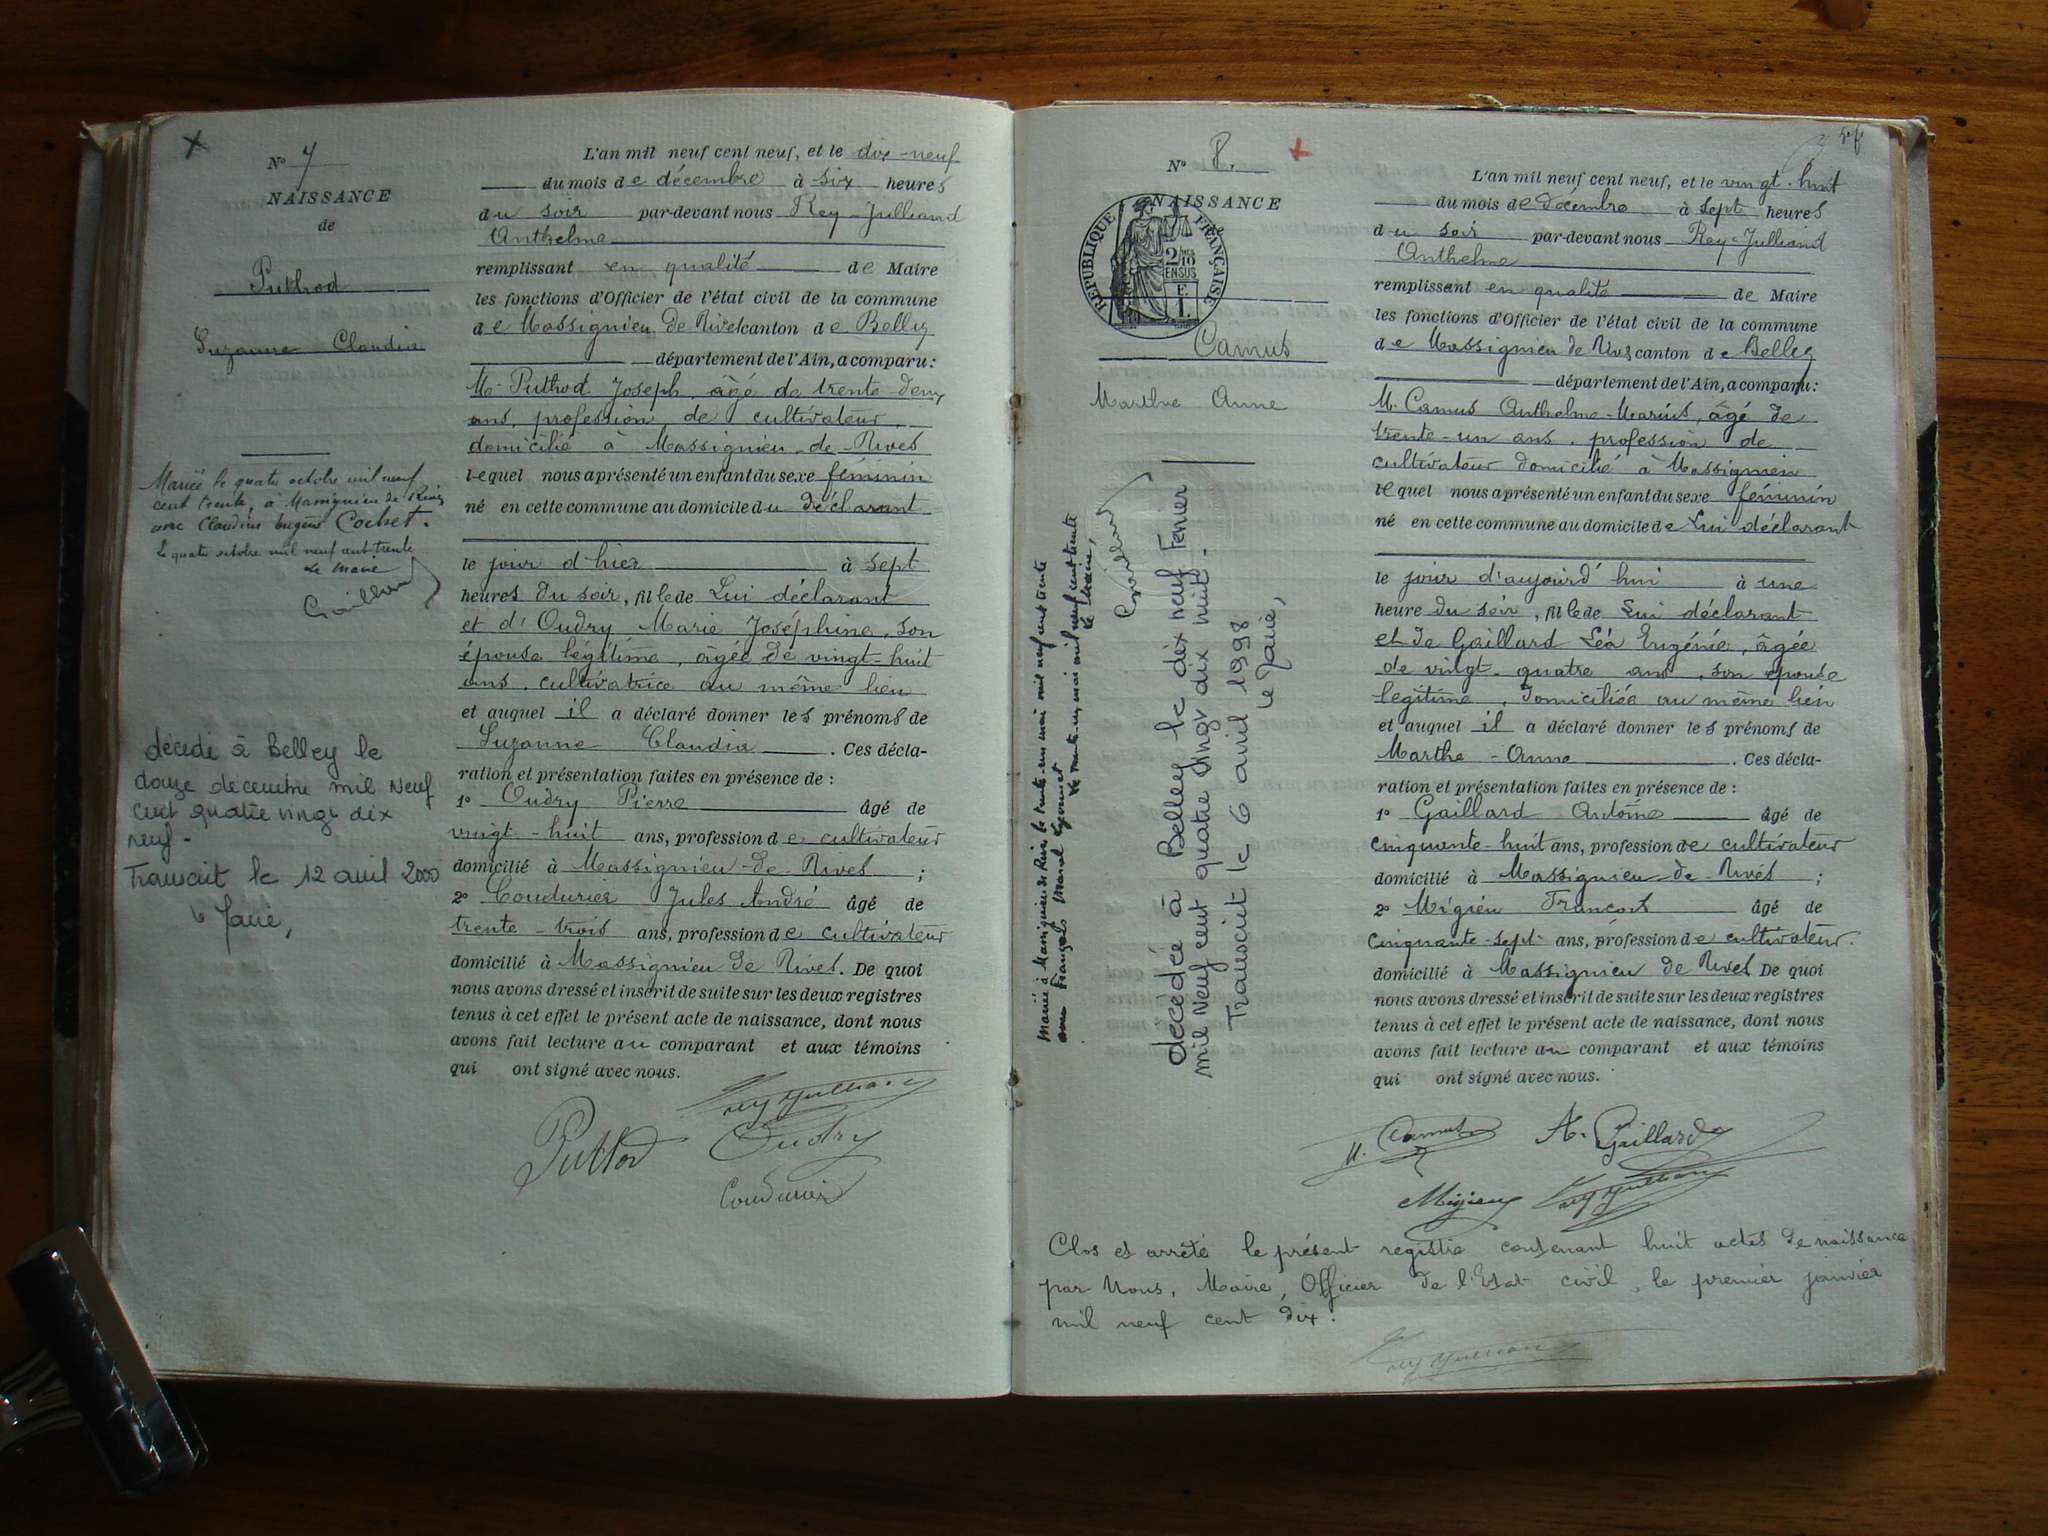 N° 7
NAISSANCE
de
Puthod
Suzanne Claudia
Mariée le quatre octobre mil neuf
cent trente, à Massignieu de Rives
avec Claudius Eugène Cochet.
Le quatre octobre mil neuf cent trente
Le Maire
Gaillard
décédé à Belley le
douze decembre mil Neuf
cent quatre vingt dix
neuf -
Transcrit le 12 avril 2000
L'an mil neuf cent neuf, et le dix-neuf
du mois de décembre à six heures
du soir par-devant nous Rey-Julliand
Anthelme
remplissant en qualité de Maire
les fonctions d'Officier de l'état civil de la commune
de Massignieu de Rives canton de Belley
département de l'Ain, a comparu :
M. Puthod Joseph, âgé de trente-deux
ans, profession de cultivateur,
domicilié à Massignieu-de-Rives
lequel nous a présenté un enfant du sexe féminin
né en cette commune au domicile du déclarant
le jour d'hier à sept
heures du soir, fille de Lui déclarant
et d'Oudry Marie Joséphine, son
épouse légitime, âgée de vingt-huit
ans, cultivatrice au même lieu
et auquel il a déclaré donner les prénoms de
Suzanne Claudia. Ces décla-
ration et présentation faites en présence de :
1° Oudry Pierre âgé de
vingt-huit ans, profession de cultivateur
domicilié à Massignieu-de-Rives ;
2° Coudurier Jules André âgé de
trente-trois ans, profession de cultivateur
domicilié à Massignieu de Rives. De quoi
nous avons dressé et inscrit de suite sur les deux registres
tenus à cet effet le présent acte de naissance, dont nous
avons fait lecture au comparant et aux témoins
qui ont signé avec nous.
Rey Julliand
Puthod Oudry
Coudurier
N° 8.
NAISSANCE
RÉPUBLIQUE FRANÇAISE
2/10
EN SUS
F.
1.
Camus
Marthe Anne
Mariée à Massignieu de Rives le trente-un mai mil neuf cent trente
avec François Marcel
Le trente-un mai mil neuf cent trente
Le Maire,
Gaillard
décédée à Belley le dix neuf Fevrier
mil Neuf cent quatre vingt dix huit.
Transcrit le 6 avril 1998
L'an mil neuf cent neuf, et le vingt-huit
du mois de décembre à sept heures
du soir par-devant nous Rey-Julliand
Anthelme
remplissant en qualité de Maire
les fonctions d'Officier de l'état civil de la commune
de Massignieu de Rives canton de Belley
département de l'Ain, a comparu :
M. Camus Anthelme-Marius, âgé de
trente-un ans, profession de
cultivateur domicilié à Massignieu
lequel nous a présenté un enfant du sexe féminin
né en cette commune au domicile de Lui déclarant
le jour d'aujourd'hui à une
heure du soir, fille de Lui déclarant
et de Gaillard Léa Eugénie, âgée
de vingt-quatre ans, son épouse
légitime, domiciliée au même lieu
et auquel il a déclaré donner les prénoms de
Marthe-Anne. Ces décla-
ration et présentation faites en présence de :
1° Gaillard Antoine âgé de
cinquante-huit ans, profession de cultivateur
domicilié à Massignieu-de-Rives ;
2° Migieu François âgé de
cinquante-sept ans, profession de cultivateur.
domicilié à Massignieu de Rives De quoi
nous avons dressé et inscrit de suite sur les deux registres
tenus à cet effet le présent acte de naissance, dont nous
avons fait lecture au comparant et aux témoins
qui ont signé avec nous.
M. Camus A. Gaillard
Migieu Rey Julliand
Clos et arrêté le présent registre contenant huit actes de naissance
par Nous, Maire, Officier de l'Etat civil, le premier janvier
mil neuf cent dix.
Rey Julliand